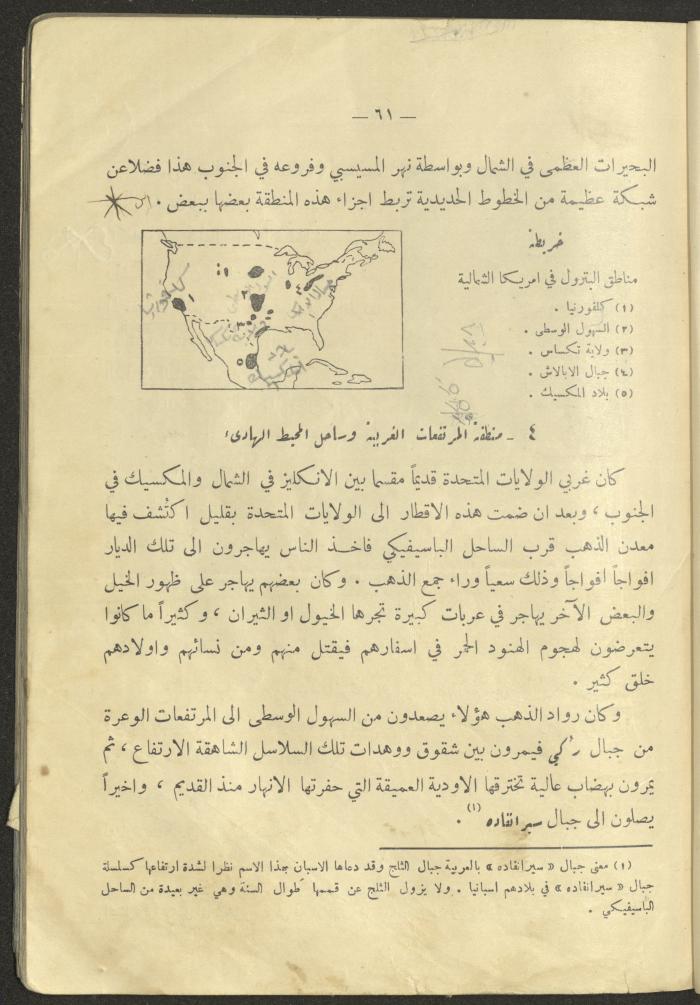 — ٦١ —
البحيرات العظمى في الشمال وبواسطة نهر المسيسبي وفروعه في الجنوب هذا فضلاعن
شبكة عظيمة من الخطوط الحديدية تربط اجزاء هذه المنطقة بعضها ببعض .
خريطة
مناطق البترول في امريكا الشمالية
(١) كلفورنيا .
(٢) السهول الوسطى .
(٣) ولاية تكساس .
(٤) جبال الابالاش .
(٥) بلاد المكسيك .
١
١
٢
٣
٤
٥
٤ ـ منطقة المرتفعات الغربية وساحل المحيط الهادىء
كان غربي الولايات المتحدة قديماً مقسما بين الانكليز في الشمال والمكسيك في
الجنوب ، وبعد ان ضمت هذه الاقطار الى الولايات المتحدة بقليل اكتُشف فيها
معدن الذهب قرب الساحل الباسيفيكي فاخذ الناس يهاجرون الى تلك الديار
افواجاً افواجاً وذلك سعياً وراء جمع الذهب . وكان بعضهم يهاجر على ظهور الخيل
والبعض الآخر يهاجر في عربات كبيرة تجرها الخيول او الثيران ، وكثيراً ما كانوا
يتعرضون لهجوم الهنود الحمر في اسفارهم فيقتل منهم ومن نسائهم واولادهم
خلق كثير .
وكان رواد الذهب هؤلاء يصعدون من السهول الوسطى الى المرتفعات الوعرة
من جبال رُكي فيمرون بين شقوق ووهدات تلك السلاسل الشاهقة الارتفاع ، ثم
يمرون بهضاب عالية تخترقها الاودية العميقة التي حفرتها الانهار منذ القديم ، واخيراً
يصلون الى جبال سيرانفاده (١) .
(١) معنى جبال « سيرانفاده » بالعربية جبال الثلج وقد دعاها الاسبان بهذا الاسم نظرا لشدة ارتفاعها كسلسلة
جبال « سيرانفاده » في بلادهم اسبانيا . ولا يزول الثلج عن قممها طوال السنة وهي غير بعيدة من الساحل
الباسيفيكي .